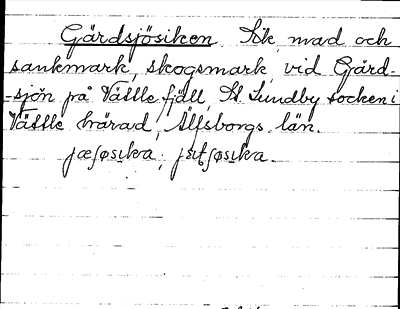 Gårdsjösiken Sik, mad och
sankmark, skogsmark vid Gård-
-sjön på Vättle fjäll, St. Lundby socken i
Vättle härad, Älfsborgs län.